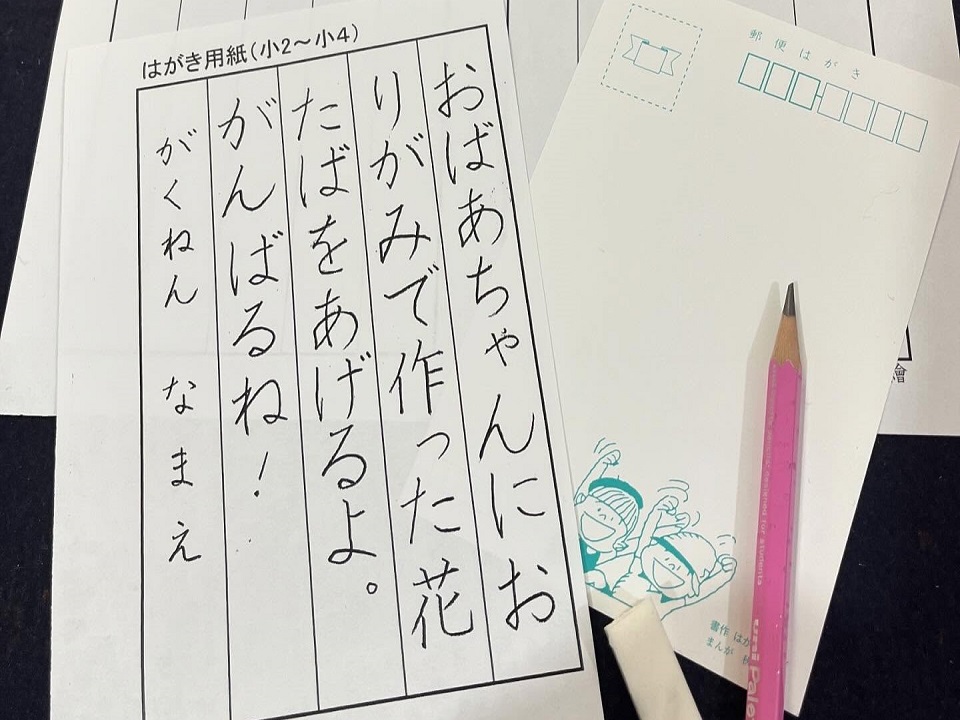 はがき用紙(小2～小4)
おばあちゃんにお
りがみで作った花
たばをあげるよ。
がんばるね!
がくねん なまえ
郵便はがき
書作 はが
まんが
繪
for students
Pale